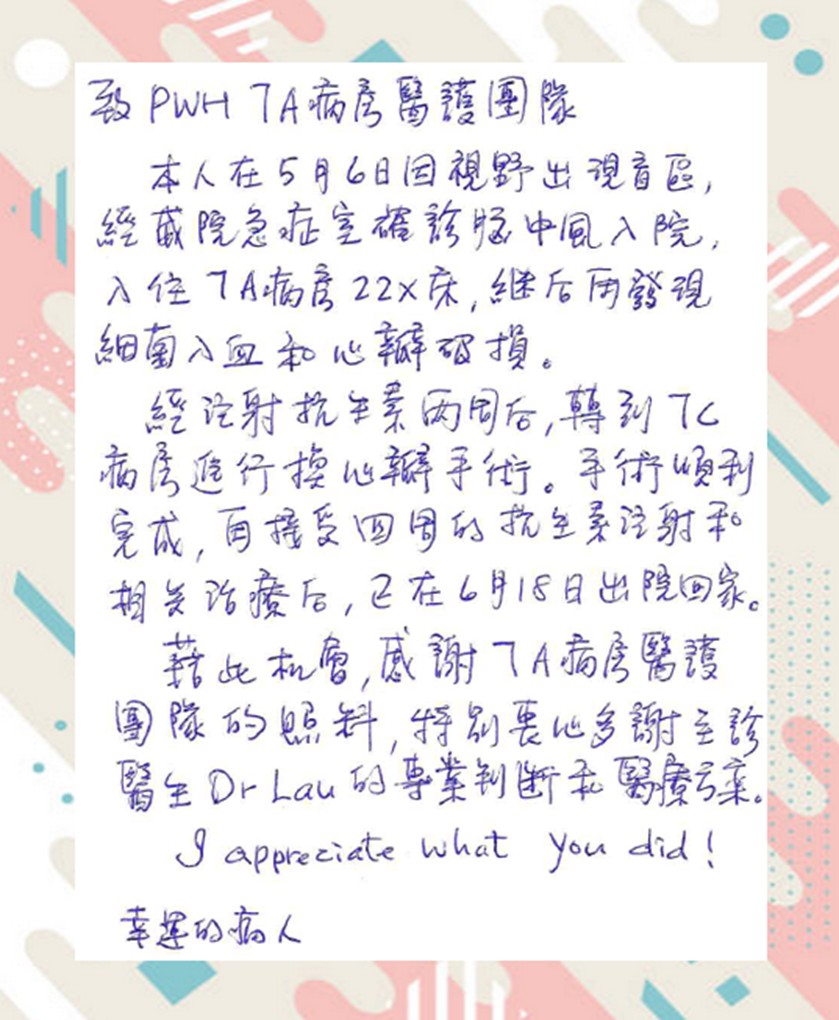 致 PWH 7A病房醫護團隊
本人在5月6日因視野出現盲區,
經貴院急症室確診腦中風入院,
入住 7A病房 22X床, 継后再發現
細菌入血和心瓣破損。
經注射抗生素两周后, 轉到 7C
病房進行換心瓣手術。手術順利
完成, 再接受四周的抗生素注射和
相关治療后, 已在6月18日出院回家。
藉此机會, 感謝 7A病房醫護
團隊的照料, 特別衷心多謝主診
醫生 Dr Lau 的專業判斷和醫療方案。
I appreciate what you did!
幸運的病人